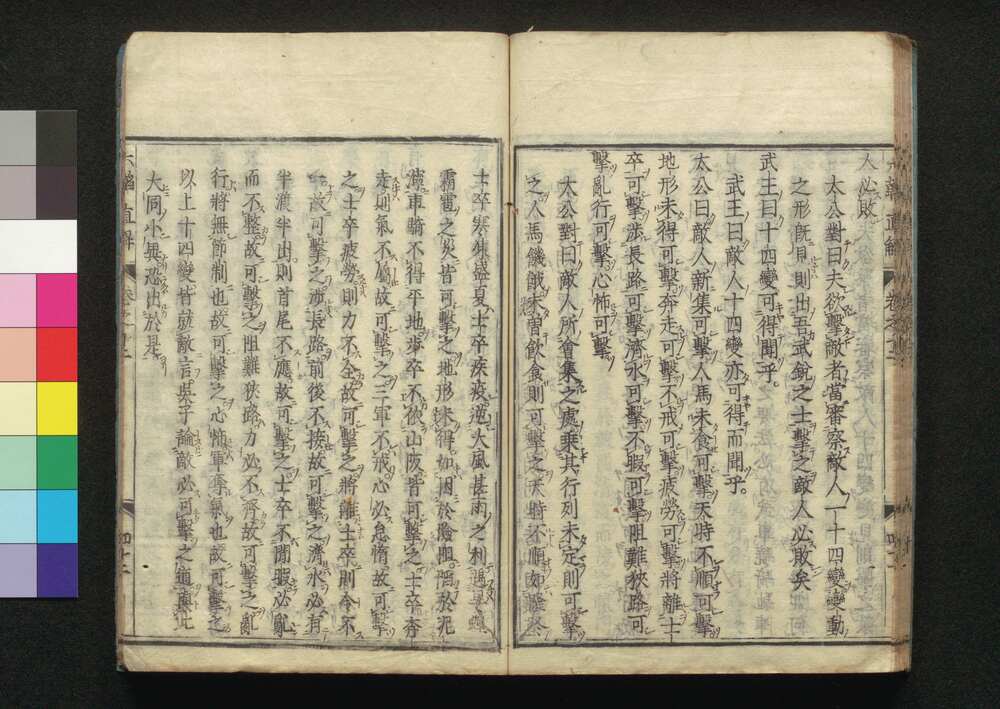 人必敗
太公對曰夫欲擊敵者當審察敵人一十四變變動
之形旣見則出吾武銳之士擊之敵人必敗矣
武王曰十四變可得聞乎
武王曰敵人十四變亦可得而聞乎
太公曰敵人新集可擊人馬未食可擊天時不順可擊
地形未得可擊奔走可擊不戒可擊疲勞可擊將離士
卒可擊涉長路可擊濟水可擊不暇可擊阻難狹路可
擊亂行可擊心怖可擊
太公對曰敵人所會集之處乗其行列未定則可擊
之人馬饑餓未曽飲食則可擊之天時不順如隆冬
士卒寒凍盛夏士卒疾疫逆大風甚雨之利遇
霜雹之災皆可擊之地形未得如困於險阻陷於泥
車騎不得平地步卒不依山阪皆可擊之士卒奔
走則氣不屬故可擊之三軍不戒心必怠惰故可擊
之士卒疲勞則力不全故可擊之將離士卒則令不
故可擊之涉長路前後不接故可擊之濟水必有
半渡半出則首尾不應故可擊之士卒不閒暇必亂
而不整故可擊之阻難狹路力必不齊故可擊之亂
行將無節制也故可擊之心怖軍奪氣也故可擊之
以上十四變皆就敵言吳子論敵必可擊之道與此
大同小異恐出於是
六韜直解
卷之十二
四十二